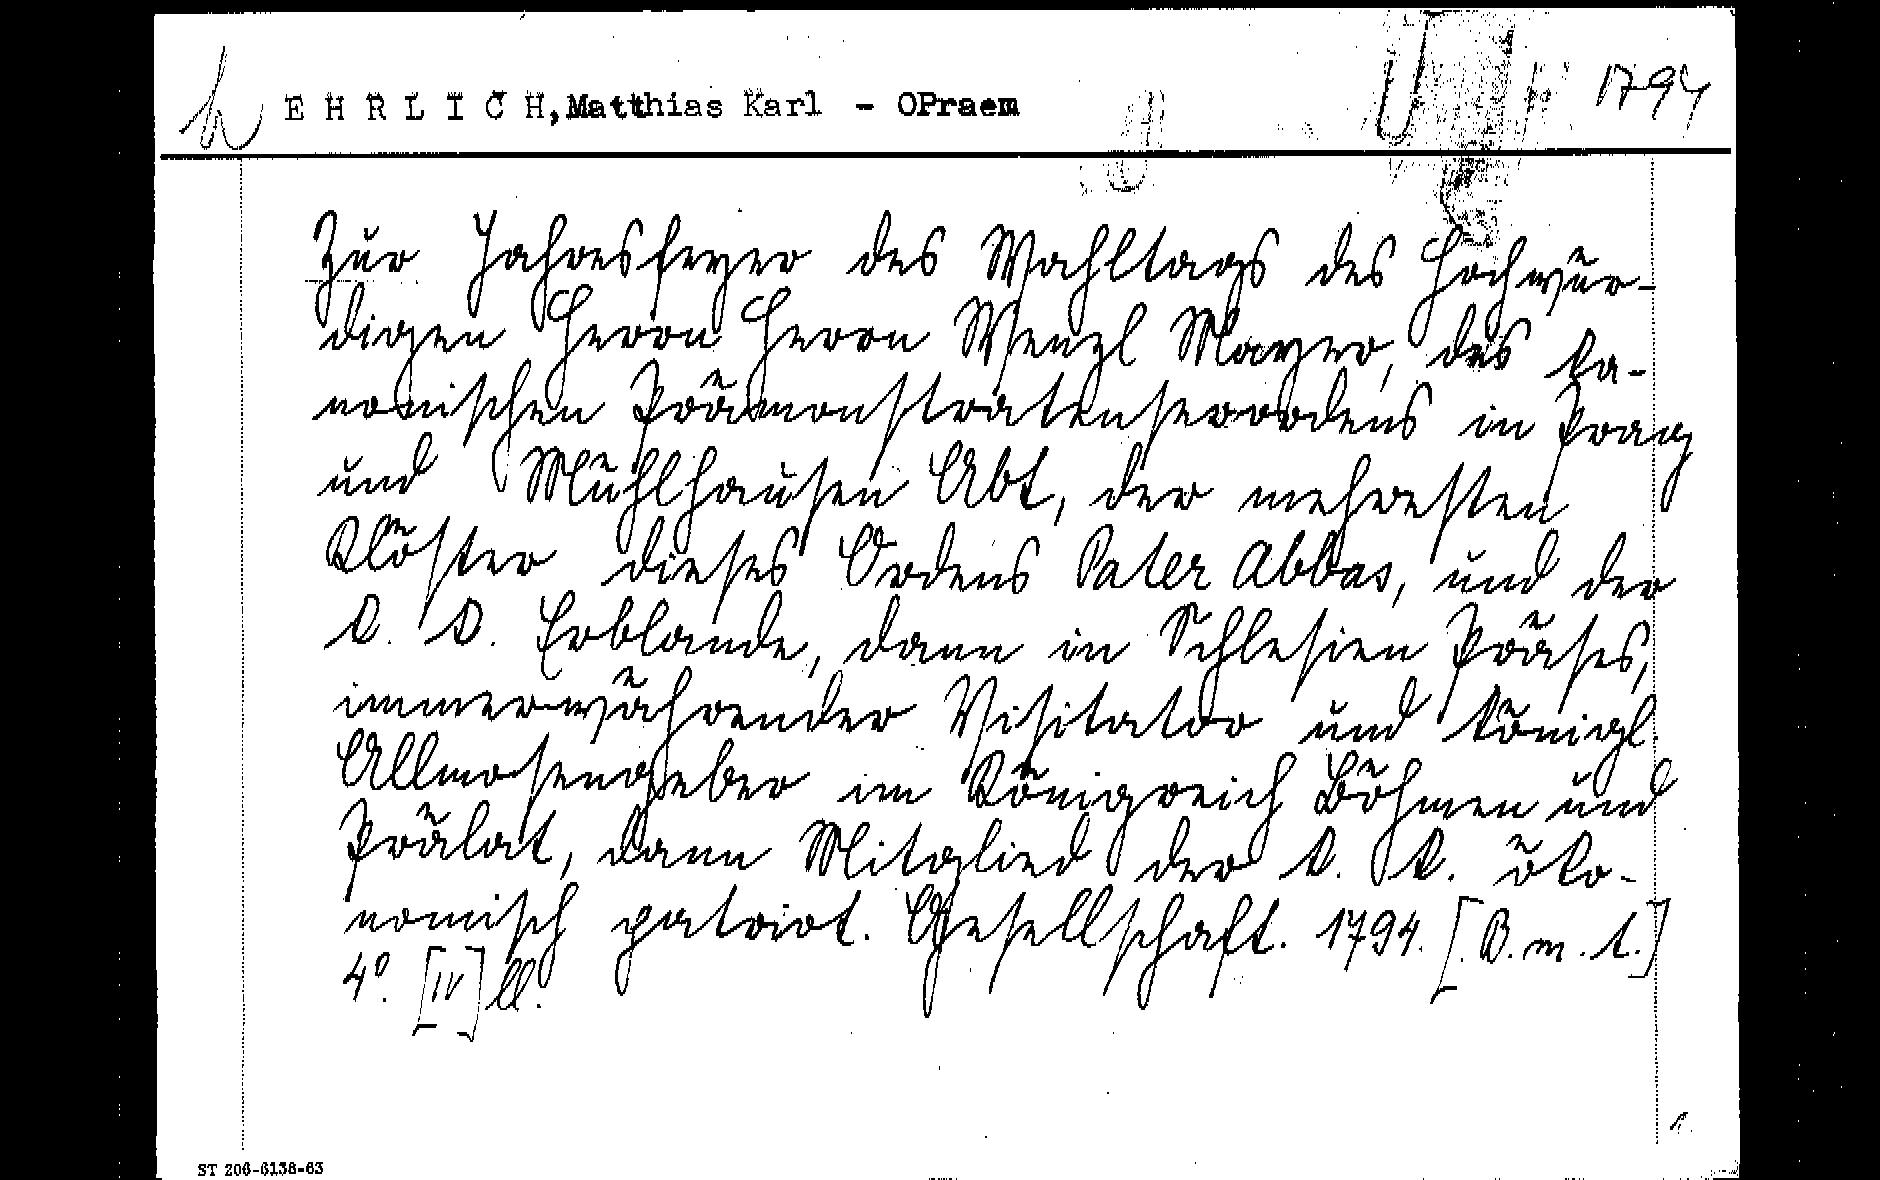 h E H R L I C H, Matthias Karl - OPraem 1794
Zur Jahresfeyer des Wahltags des Hochwür-
digen Herrn Herrn Wenzl Mayer, des ka-
nonischen Prämonstratenserordens in Prag
und Mühlhausen Abt, der mehresten
Klöster dieses Ordens Pater Abbas, und der
k. k. Erblande, dann in Schlesien Präses,
immerwährender Visitator und königl.
Allmosengeber im Königreich Böhmen und
Prälat, dann Mitglied der k. k. öko-
nomisch patriot. Gesellschaft. 1794. [B. m. t.]
4°. [IV] ll.
ST 206-6138-63